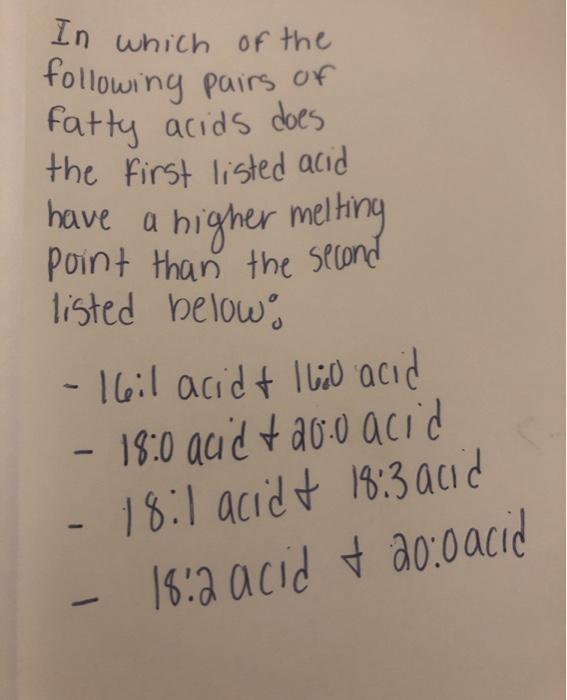 In which of the
following pairs of
fatty acids does
the first listed acid
have a higher melting
point than the second
listed below:
- 16:1 acid + 16:0 acid
- 18:0 acid + 20:0 acid
- 18:1 acid + 18:3 acid
- 18:2 acid + 20:0 acid